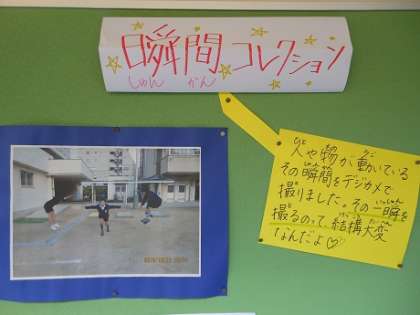 瞬間コレクション
しゅん かん
人や物が動いている
その瞬間をデジカメで
撮りました。その一瞬を
撮るのって、結構大変
なんだよ♡